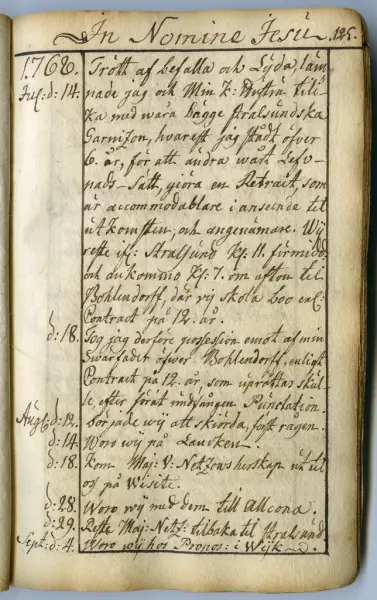 In Nomine Jesu 125.
1768. Trött af befalla och Lyda, läm-
Jul: d: 14. nade jag och Min K: Hustru till-
ka med wåra bägge Stralsundska
Garnizon, hwarest jag stådt öfver
6. år, för att ändra wårt Lef-
nads-sätt, giöra en Retrait, som
är accommodablare i anseende til
utkomsten, och angenämare. Wij
reste if: Stralsund Kl: 11. förmidd:
och du kommo Kl: 7. om afton til
Bohlendorff, där wij skola boo enl:
Contract på 12. år.
d: 18. Tog jag derföre possession emot af min
Swärfader öfwer Bohlendorff, enligt
Contract på 12. år, som uprättas skul-
le, efter förut ingången Punctation
Aug: d: 12. började wij att skiörda, först rågen.
d: 14. Woro wij på Lancken.
d: 18. Kom Maj: V: Netzows herskap ut til
oss på Wisite.
d: 28. Woro wij med dem till Altcona.
d: 29. Reste Maj: Netz: tilbaka til Stralsund.
Sept: d: 4. Woro wij hos Propos: i Wijk